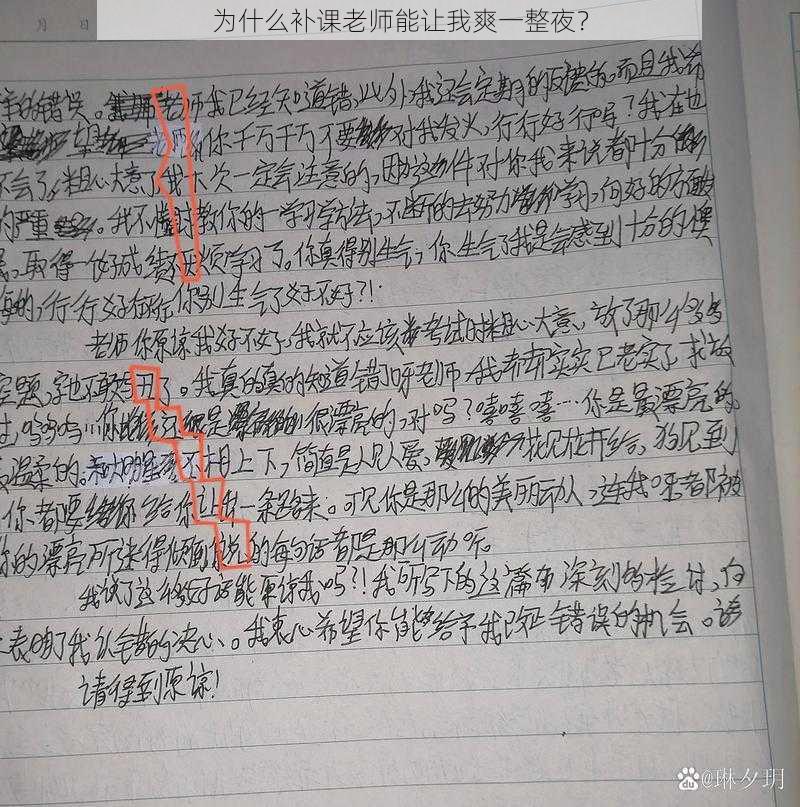 月 日
为什么补课老师能让我爽一整夜？
的错误。老师我已经知道错,此外,我还会定期的反馈的。而且我希
望 你千万千万不要对我发火,行行好行吗?我在也
不会了。粗心大意了我下次一定会注意的,因为这边件对你我来说都十分
的严重。我不懂时教你的一学习学方法,不断的去努力学习,向好的方面
展,取得一好成绩不烦学习了。你真得别生气,你生气了我是会感到十分的懊
悔的,行行好行你别生气了好不好?!
老师你原谅我好不好,我就不应该考试时粗心大意、放了那么多
实题,字也不丑了。我真的真的知道错了呀老师,我老老实实已老实了求放
过,呜呜呜…你是很漂亮的,对吗?嘻嘻嘻…你是最漂亮的
温柔的。和明星不相上下,简直是人见人爱,花见花开
你都要给你让出一条路来。可见你是那么的美丽动人,连我呀都被
你的漂亮所迷得倾倒,你说的每句话都是那么动听。
我说了这么好话能原谅我吗?!我所写下的这篇布深刻的检讨,向
表明了我认错的决心、。我衷心希望你能够给予我改正错误的机会。请
请得到原谅!
@琳夕玥